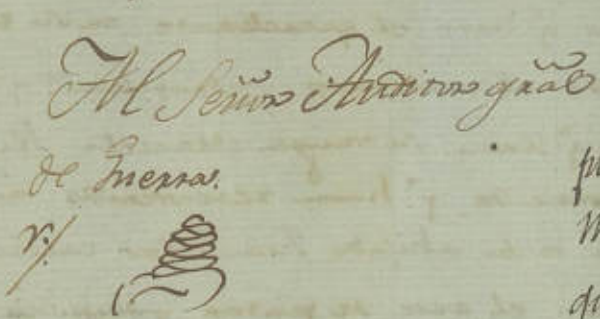 Al Señor Auditor grãl
de Guerra.